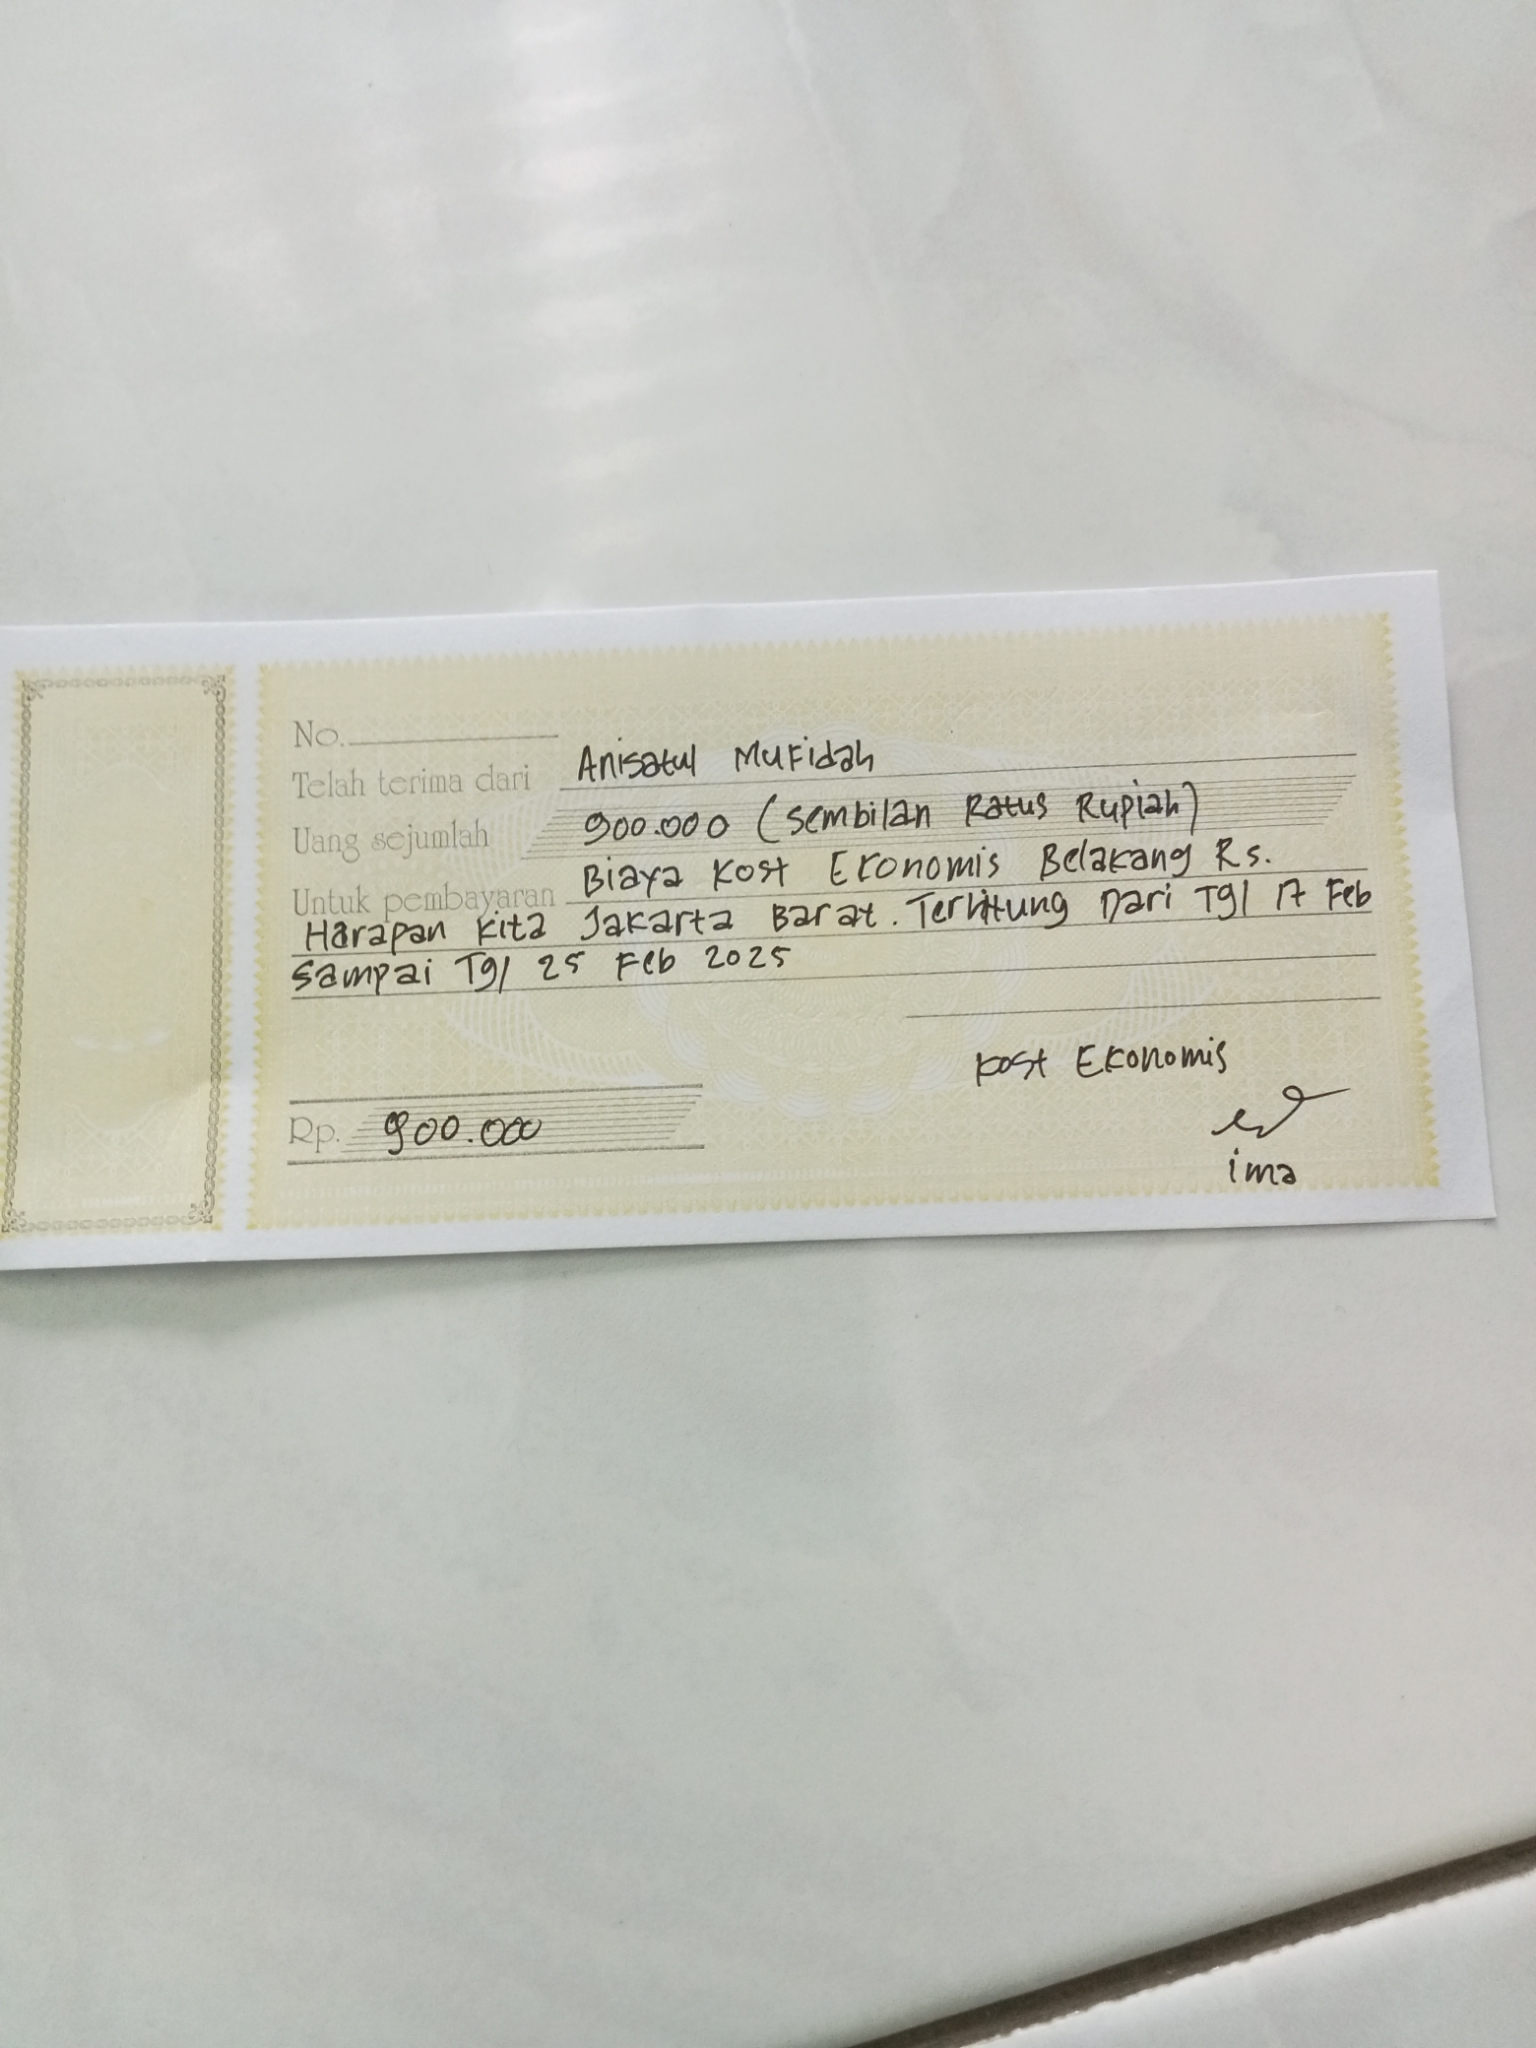 No.
Telah terima dari Anisatul Mufidah
Uang sejumlah 900.000 (Sembilan Ratus Rupiah)
Untuk pembayaran Biaya Kost Ekonomis Belakang Rs.
Harapan Kita Jakarta Barat. Terhitung Dari Tgl 17 Feb
Sampai Tgl 25 Feb 2025
Kost Ekonomis
Rp. 900.000
ima